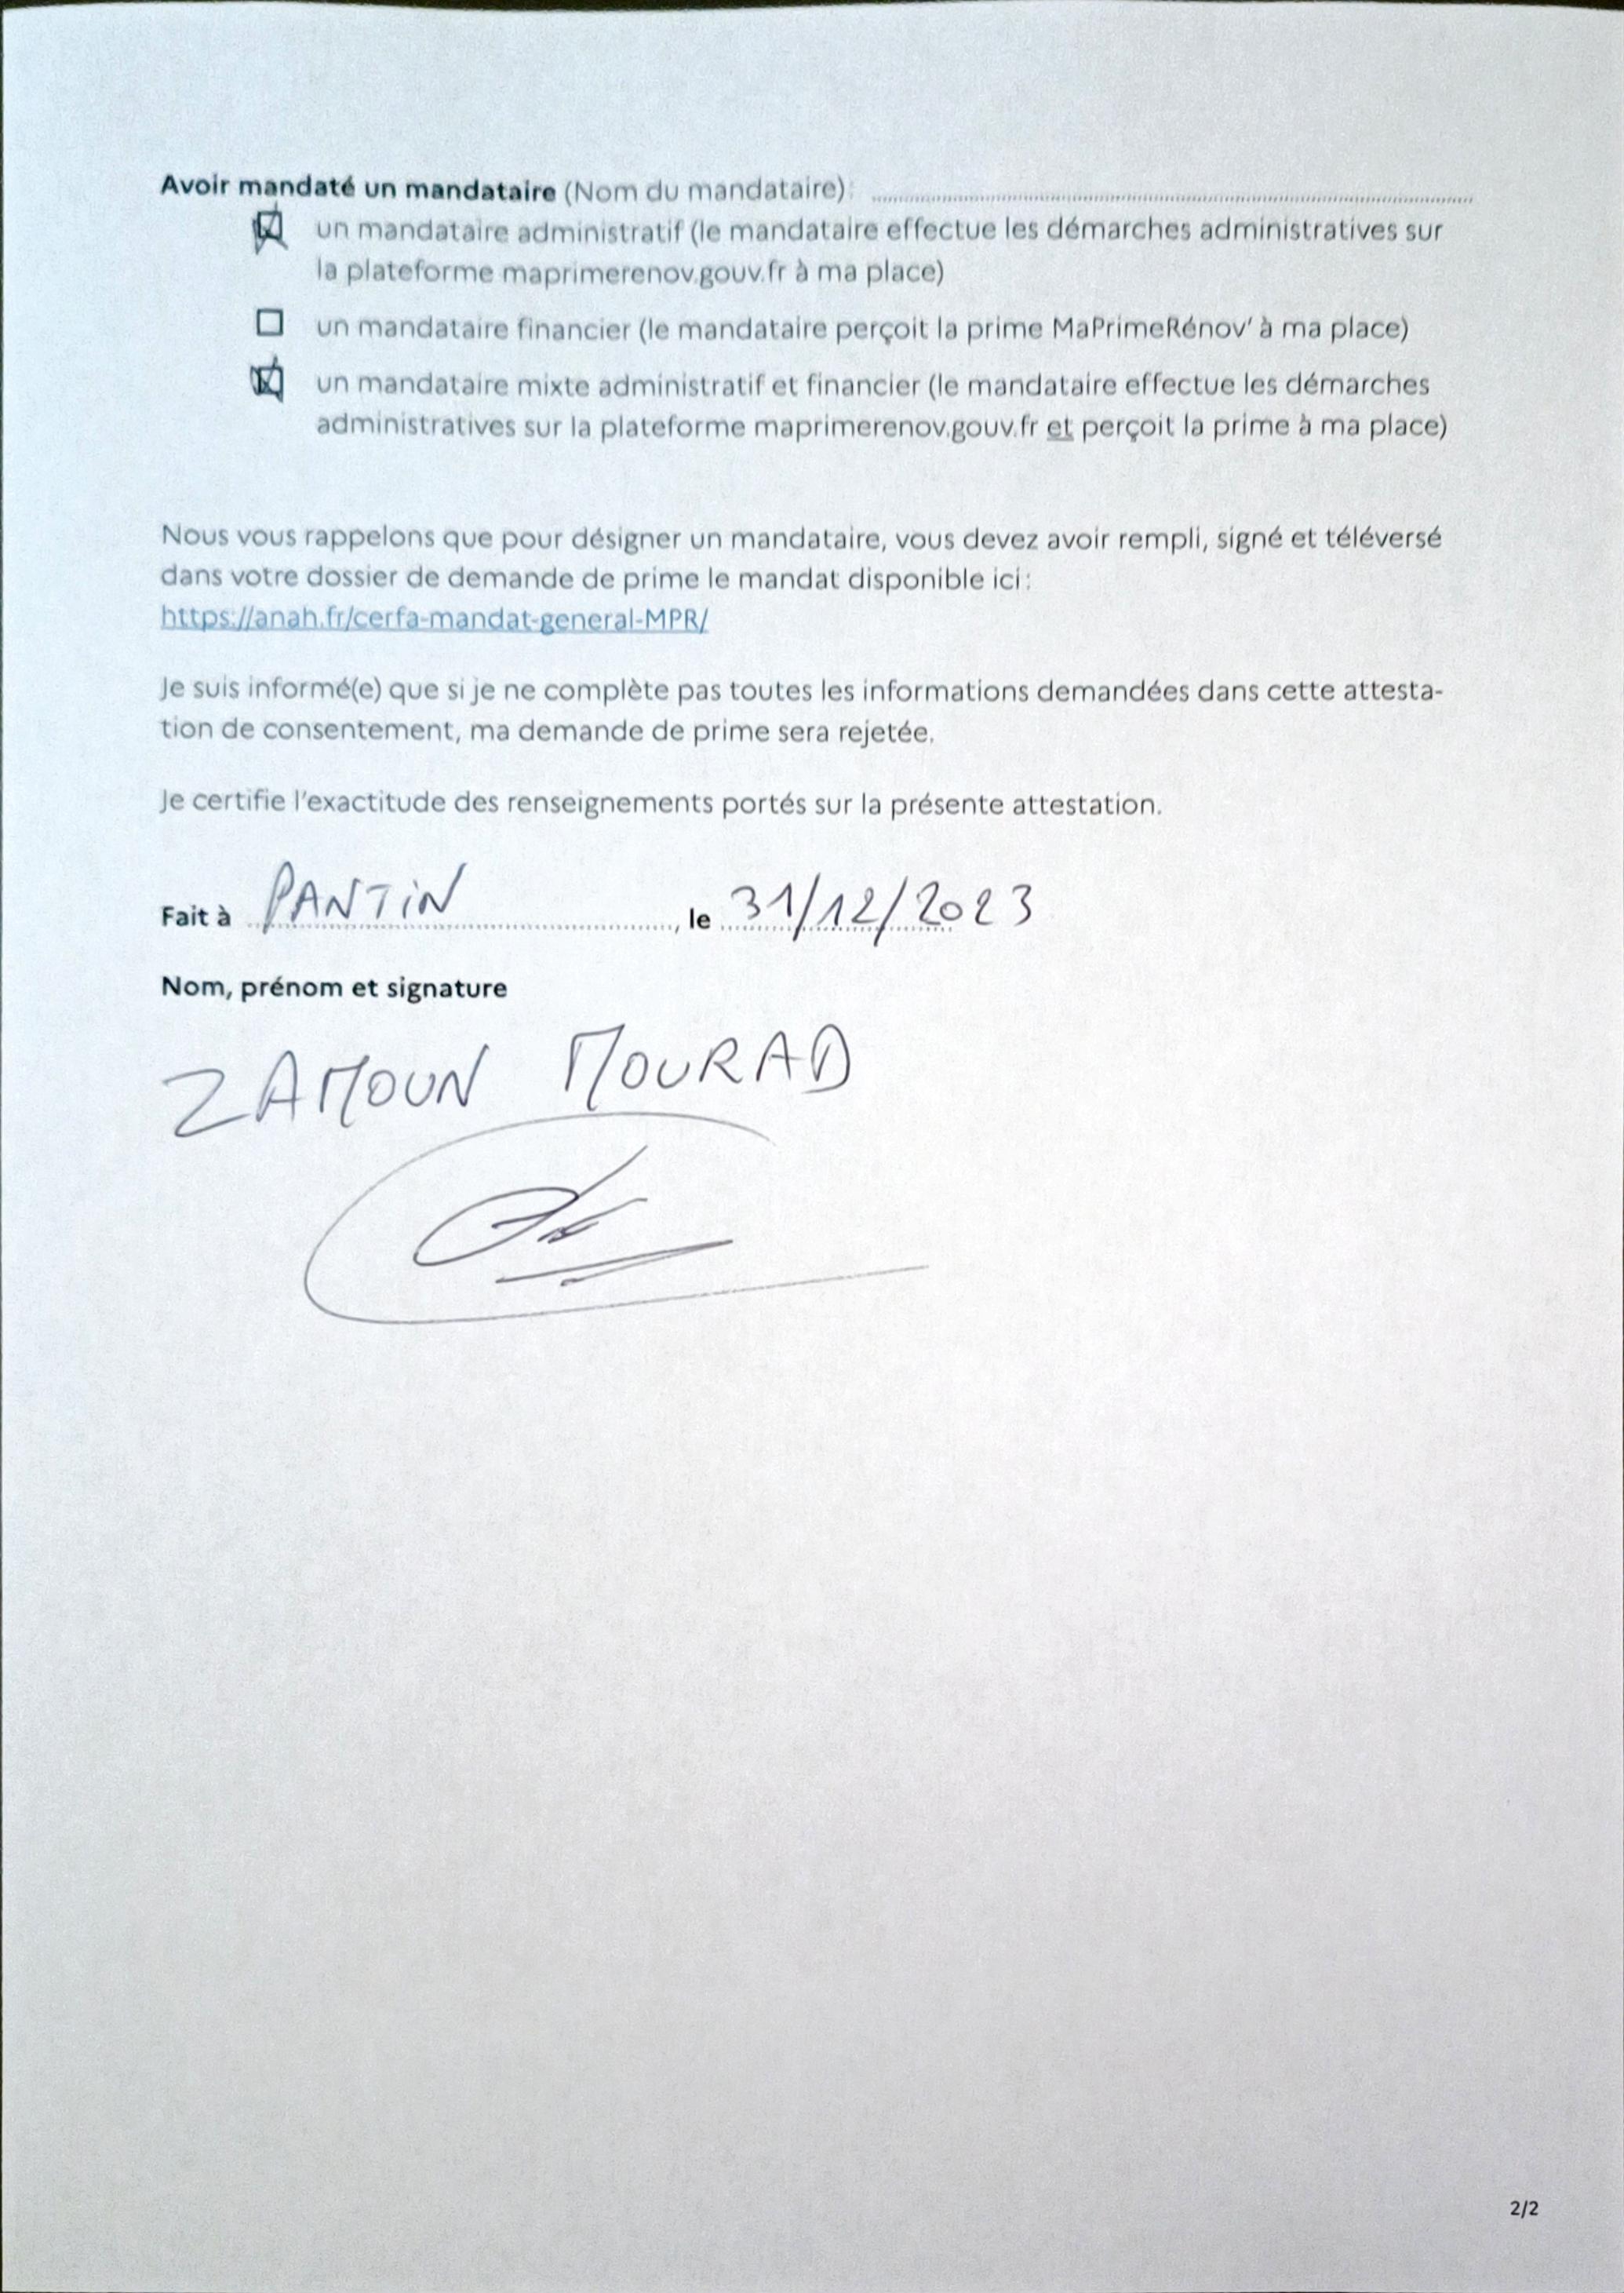 Avoir mandaté un mandataire (Nom du mandataire):
☒ un mandataire administratif (le mandataire effectue les démarches administratives sur
la plateforme maprimerenov.gouv.fr à ma place)
☐ un mandataire financier (le mandataire perçoit la prime MaPrimeRénov' à ma place)
☒ un mandataire mixte administratif et financier (le mandataire effectue les démarches
administratives sur la plateforme maprimerenov.gouv.fr et perçoit la prime à ma place)
Nous vous rappelons que pour désigner un mandataire, vous devez avoir rempli, signé et téléversé
dans votre dossier de demande de prime le mandat disponible ici :
https://anah.fr/cerfa-mandat-general-MPR/
Je suis informé(e) que si je ne complète pas toutes les informations demandées dans cette attesta-
tion de consentement, ma demande de prime sera rejetée.
Je certifie l'exactitude des renseignements portés sur la présente attestation.
Fait à PANTIN, le 31/12/2023
Nom, prénom et signature
ZAMOUN MOURAD
2/2